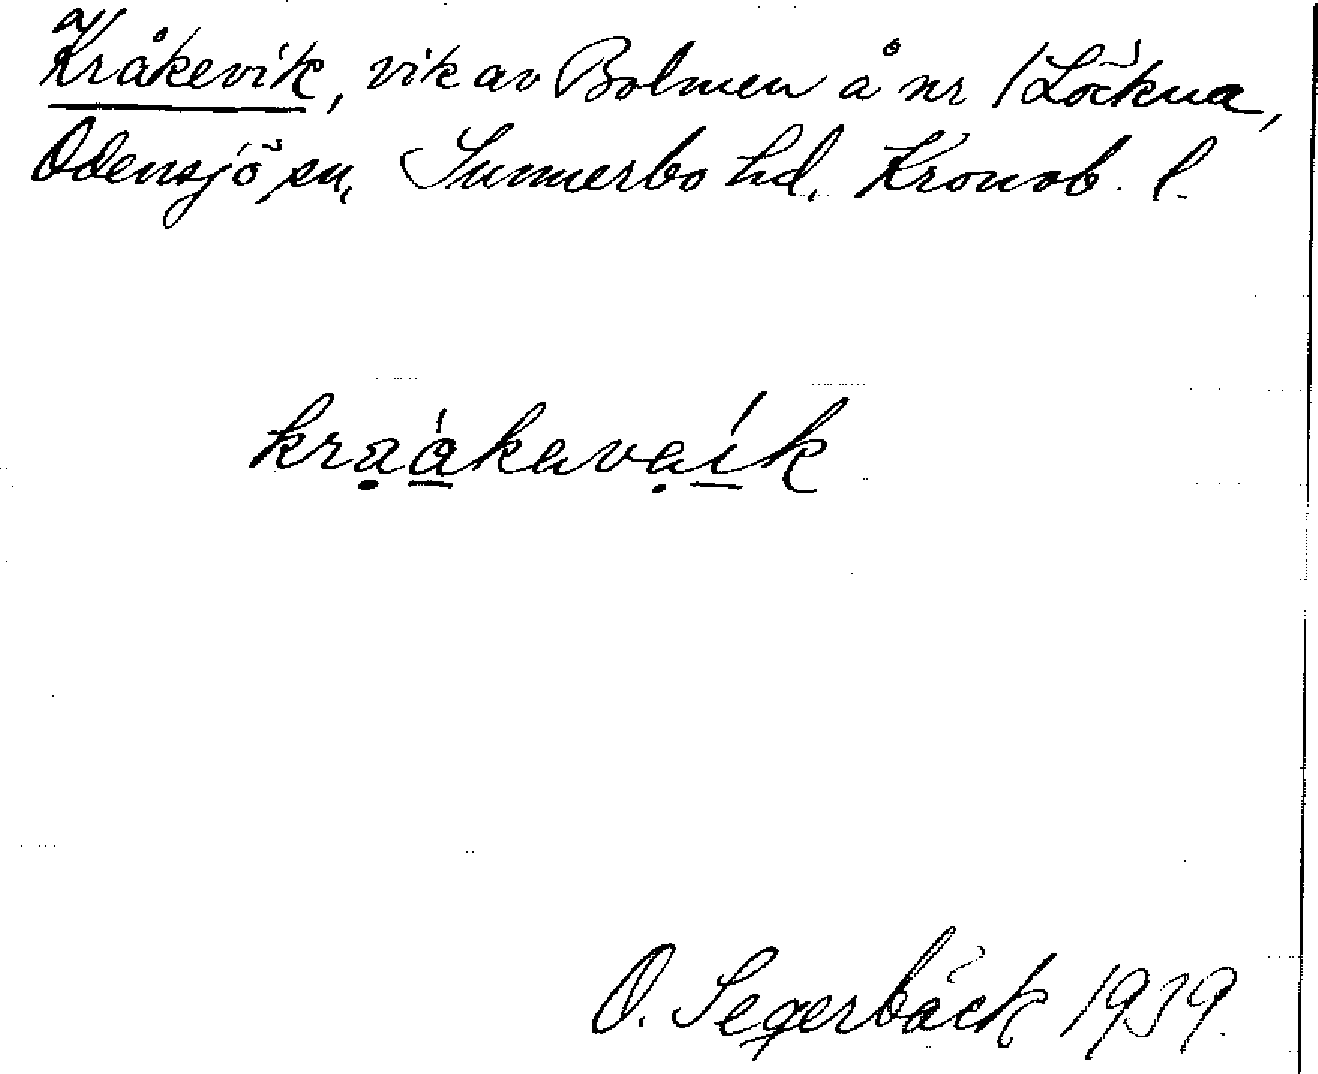 Kråkevik, vik av Bolmen å nr 1 Löckna,
Odensjö sn, Sunnerbo hd. Kronob. l.
krạákavạík
O. Segerbäck 1939.